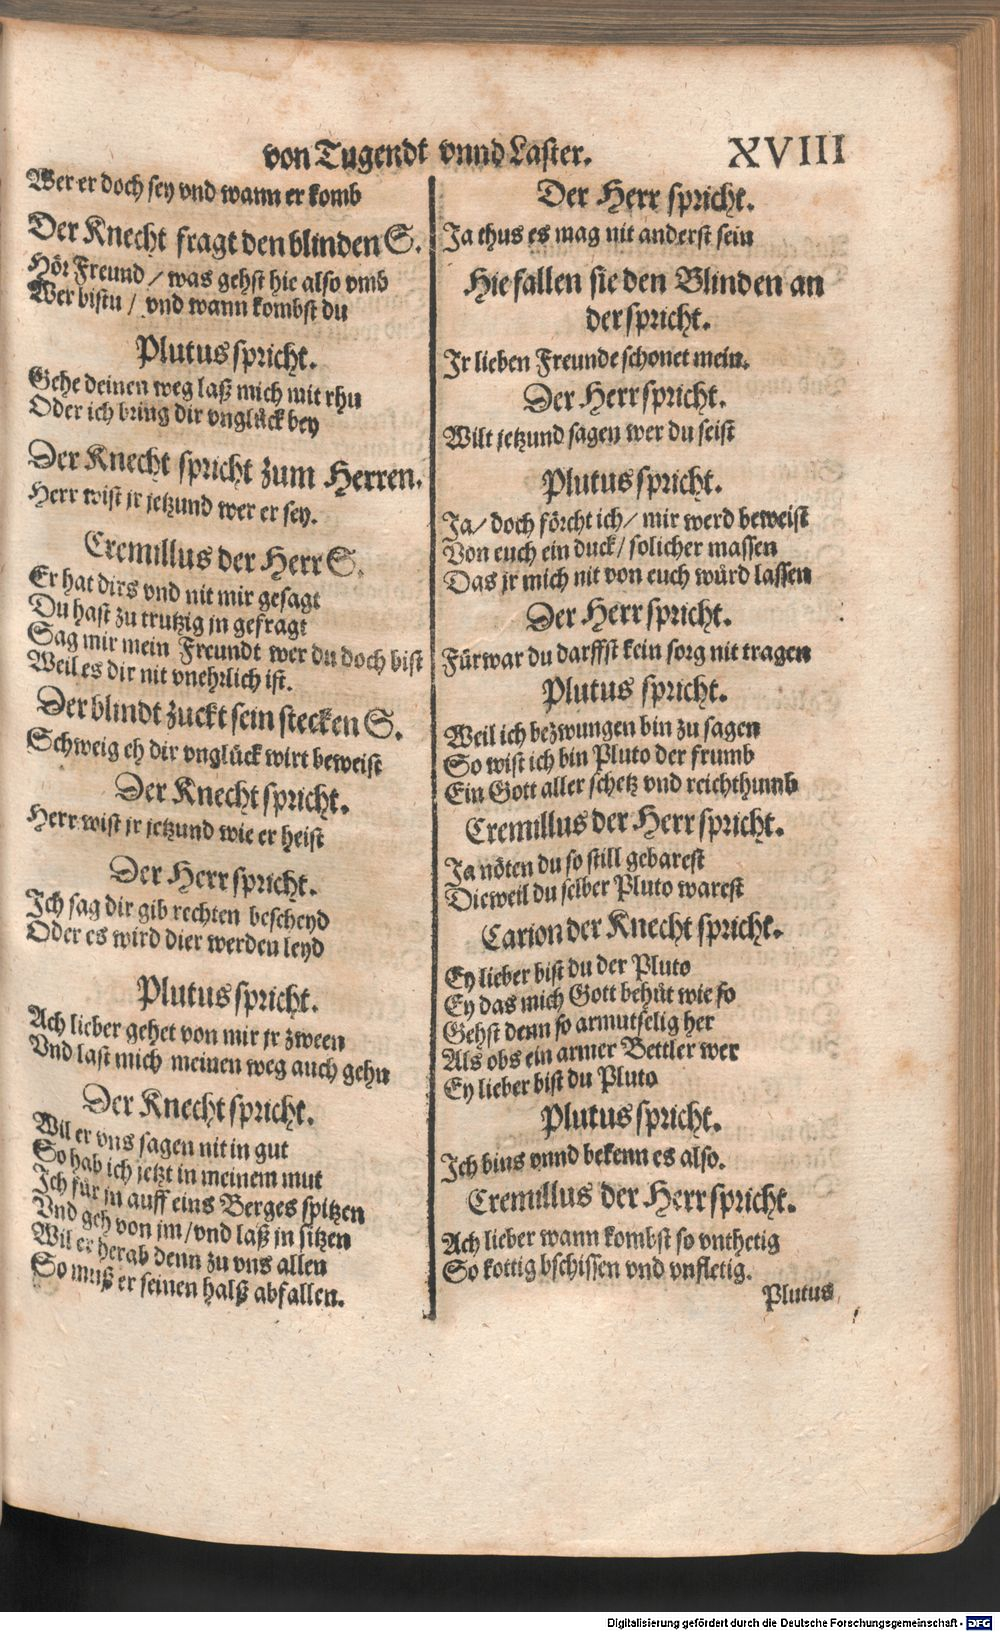 von Tugendt vnnd Laster. XVIII
Wer er doch sey vnd wann er komb
Der Knecht fragt den blinden S.
Hör Freund / was gehst hie also vmb
Wer bistu / vnd wann kombst du
Plutus spricht.
Gehe deinen weg laß mich mit rhu
Oder ich bring dir vnglück bey
Der Knecht spricht zum Herren.
Herr wist jr jetzund wer er sey.
Cremillus der Herr S.
Er hat dirs vnd nit mir gesagt
Du hast zu trutzig jn gefragt
Sag mir mein Freundt wer du doch bist
Weil es dir nit vnehrlich ist.
Der blindt zuckt sein stecken S.
Schweig eh dir vnglück wirt beweist
Der Knecht spricht.
Herr wist jr jetzund wie er heist
Der Herr spricht.
Ich sag dir gib rechten bescheyd
Oder es wird dier werden leyd
Plutus spricht.
Ach lieber gehet von mir jr zween
Vnd last mich meinen weg auch gehn
Der Knecht spricht.
Wil er vns sagen nit in gut
So hab ich jetzt in meinem mut
Ich für jn auff eins Berges spitzen
Vnd geh von jm / vnd laß jn sitzen
Wil er herab denn zu vns allen
So muß er seinen halß abfallen.
Der Herr spricht.
Ja thus es mag nit anderst sein
Hie fallen sie den Blinden an
der spricht.
Jr lieben Freunde schonet mein.
Der Herr spricht.
Wilt jetzund sagen wer du seist
Plutus spricht.
Ja / doch förcht ich / mir werd beweist
Von euch ein duck / solicher massen
Das jr mich nit von euch würd lassen
Der Herr spricht.
Fürwar du darffst kein sorg nit tragen
Plutus spricht.
Weil ich bezwungen bin zu sagen
So wist ich bin Pluto der frumb
Ein Gott aller schetz vnd reichthumb
Cremillus der Herr spricht.
Ja nöten du so still gebarest
Dieweil du selber Pluto warest
Carion der Knecht spricht.
Ey lieber bist du der Pluto
Ey das mich Gott behüt wie so
Gehst denn so armutselig her
Als obs ein armer Bettler wer
Ey lieber bist du Pluto
Plutus spricht.
Ich bins vnnd bekenn es also.
Cremillus der Herr spricht.
Ach lieber wann kombst so vnthetig
So kottig bschissen vnd vnfletig.
Plutus
Digitalisierung gefördert durch die Deutsche Forschungsgemeinschaft - DFG